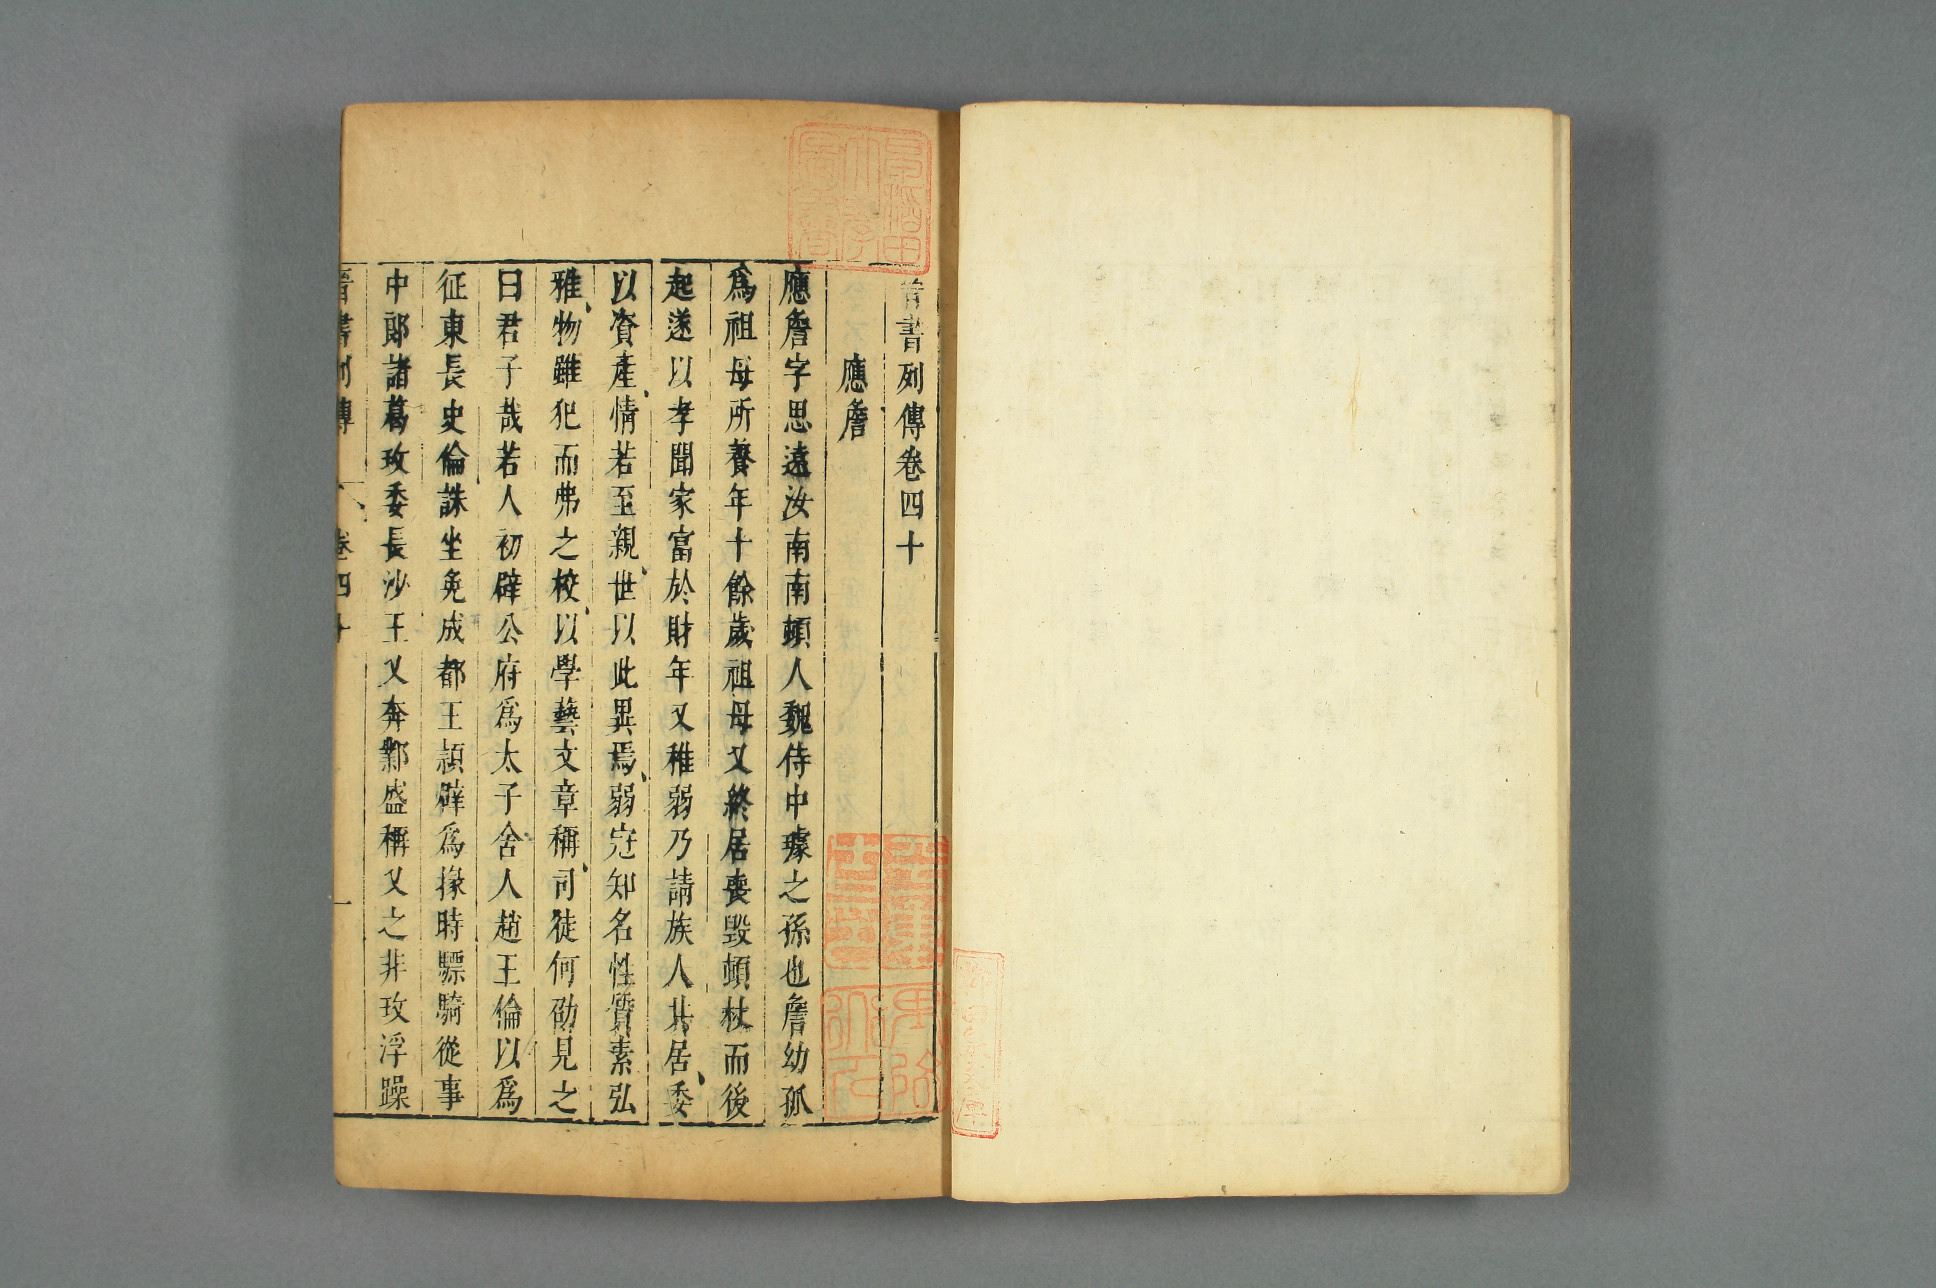 晉書列傳卷四十
應詹
應詹字思遠汝南南頓人魏侍中璩之孫也詹幼孤
爲祖母所養年十餘歲祖母又終居喪毀頓杖而後
起遂以孝聞家富於財年又稚弱乃請族人共居委
以資產情若至親世以此異焉弱冠知名性質素弘
雅物雖犯而弗之校以學藝文章稱司徒何劭見之
曰君子哉若人初辟公府爲太子舍人趙王倫以爲
征東長史倫誅坐免成都王頴辟爲掾時驃騎從事
中郎諸葛玫委長沙王乂奔鄴盛稱乂之非玫浮躁
晉書列傳 卷四十 一
早稻田大學圖書